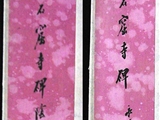 石窟寺碑
石窟寺碑陰